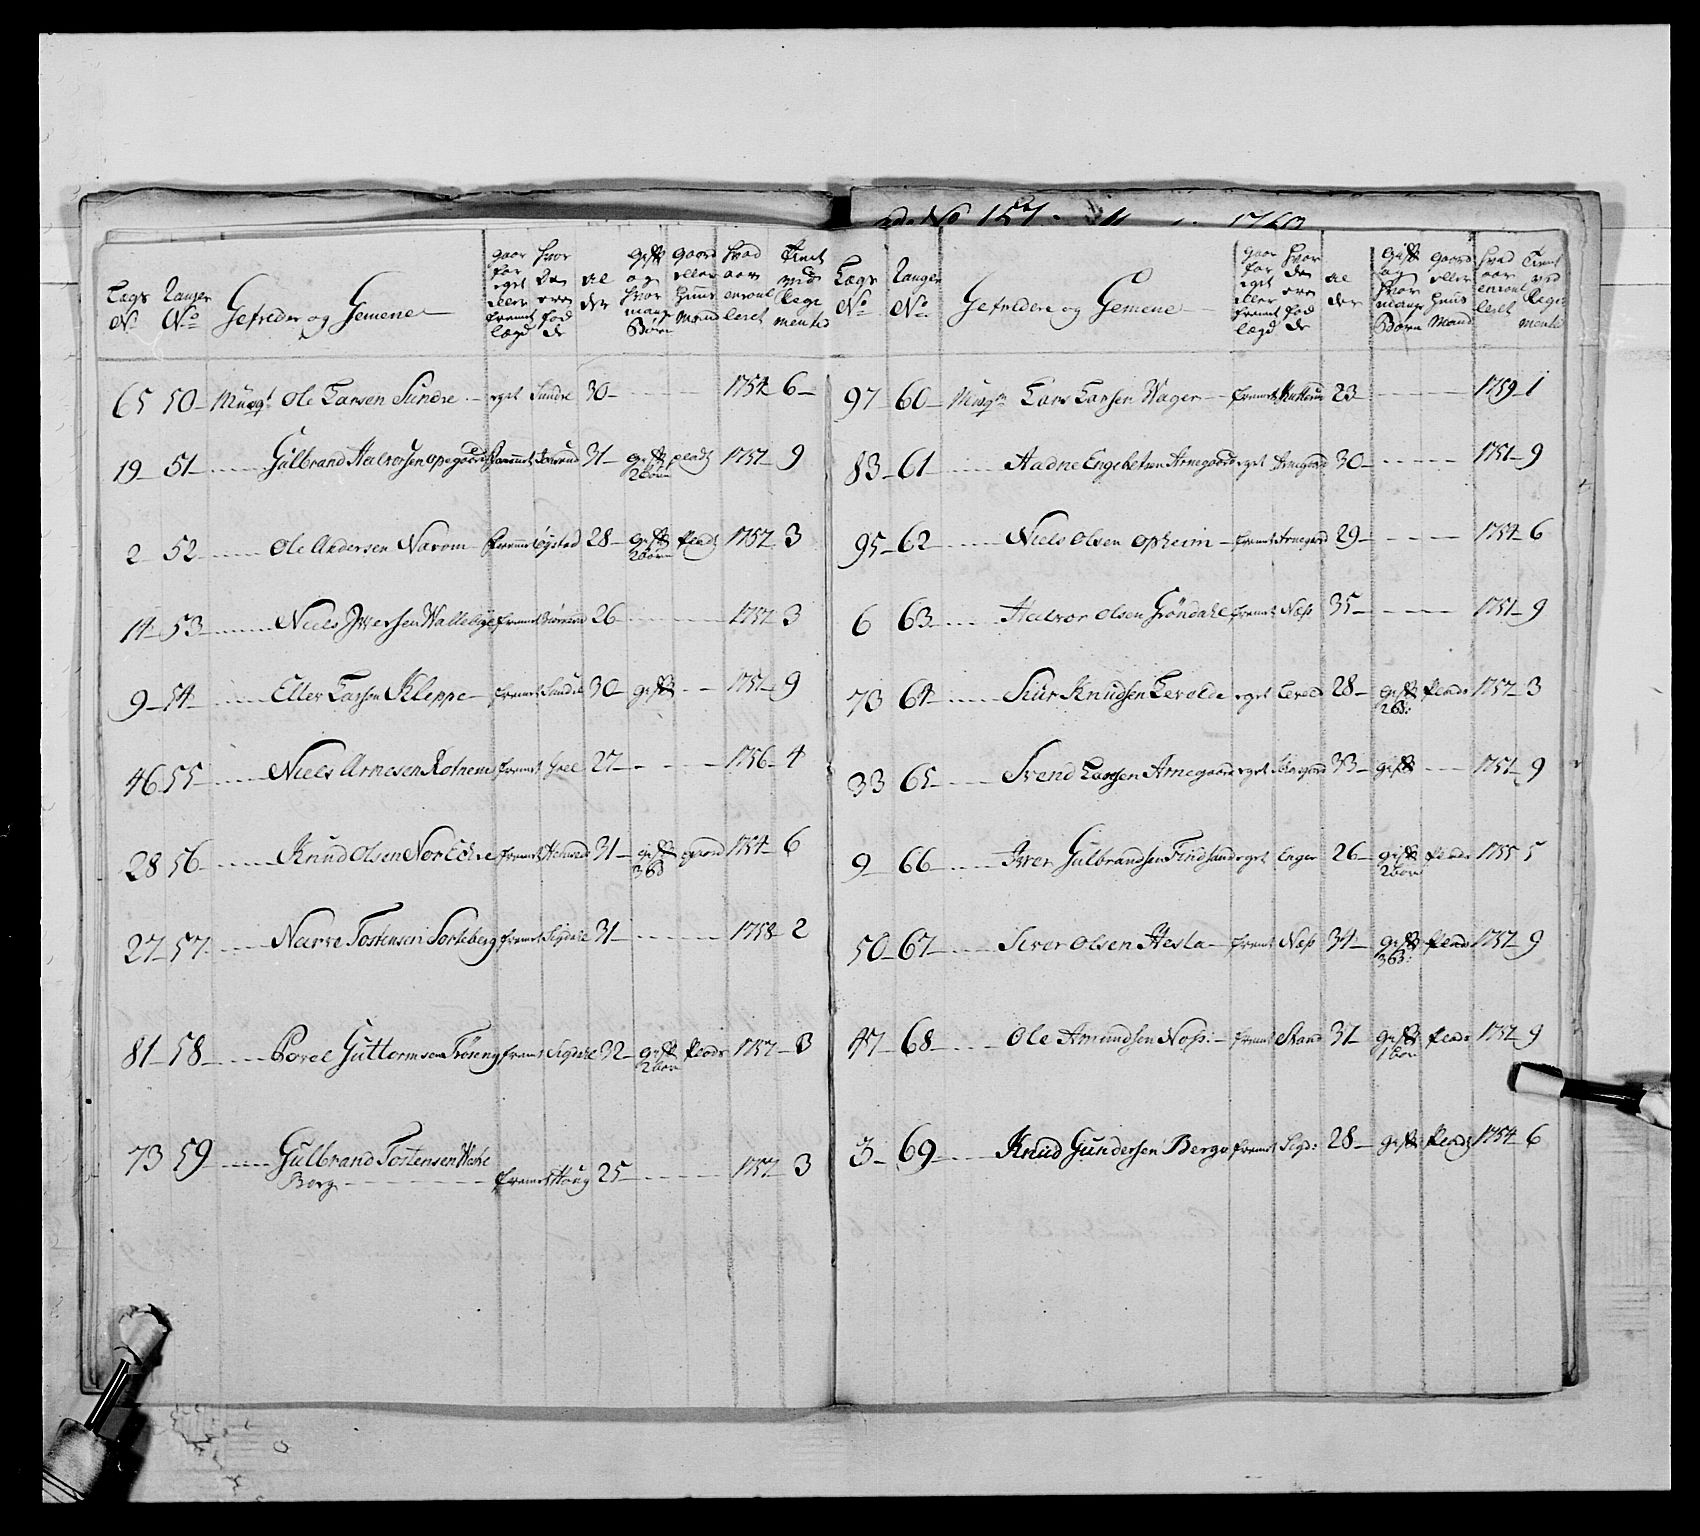 Lægs No Ranger No Gefreider og Gemene gaar for eget eller fremt lægd hvor den ere fød de al der Gift og hvor mange Børn gaard eller Huus Mand hvad aar enroul leret Tient ved Rege mented
65 50 Musqt Ole Larsen Sundre eget Sundre 30 1754 6
19 51 Gulbrand Halvorsen opegaard 31 gift 2 børn plads 1751 9
2 52 Ole Andersen Narom fremt øystad 28 gift 2 børn Plads 1757 3
14 53 Niels Iversen Wallebye fremt 26 1757 3
9 54 Eller Larsen Kleppe fremt 30 gift 1751 9
46 55 Niels Arnesen Rotnem fremt hoel 27 1756 4
28 56 Knud Olsen fremt 31 gift 3 b gaard 1754 6
27 57 Narve Tostensen Sorteberg fremt Sigdale 31 1758 2
81 58 Povel Guttormsen Trøseng fremt Sigdale 32 gift 2 børn Plads 1757 3
73 59 Gulbrand Tostensen
Borg fremt Houg 25 1757 3
No 1760
Lægs No Ranger No Gefreidere og Gemene gaar for eget eller fremt lægd hvor den ere fød de al der Gift og hvor mange Børn gaard eller Huus Mand hvad aar enroul leret Tient ved Rege mented
97 60 Musqt Lars Larsen Wager fremt 23 1759 1
83 61 Aadne Engebetsen Arnegaard eget Arnegard 30 1751 9
95 62 Niels Olsen opheim fremt Arnegard 29 1754 6
6 63 Halvor Olsen Grøndahl fremt Næss 35 1751 9
73 64 Siur Knudsen Levolde eget 28 gift 2 B: Plads 1757 3
33 65 Svend Larsen Arnegaard eget Arnegard 33 gift 1751 9
9 66 Iver Gulbrandsen Findsand eget Enger 26 gift 2 børn Plads 1755 5
50 67 Siver Olsen Hesla fremt Næss 34 gift 3 B: Plads 1751 9
47 68 Ole Amundsen Noss: fremt Skand 31 gift 1 børn Plads 1751 9
3 69 Knud Gundersen Berge fremt Sigd: 28 gift Plads 1754 6